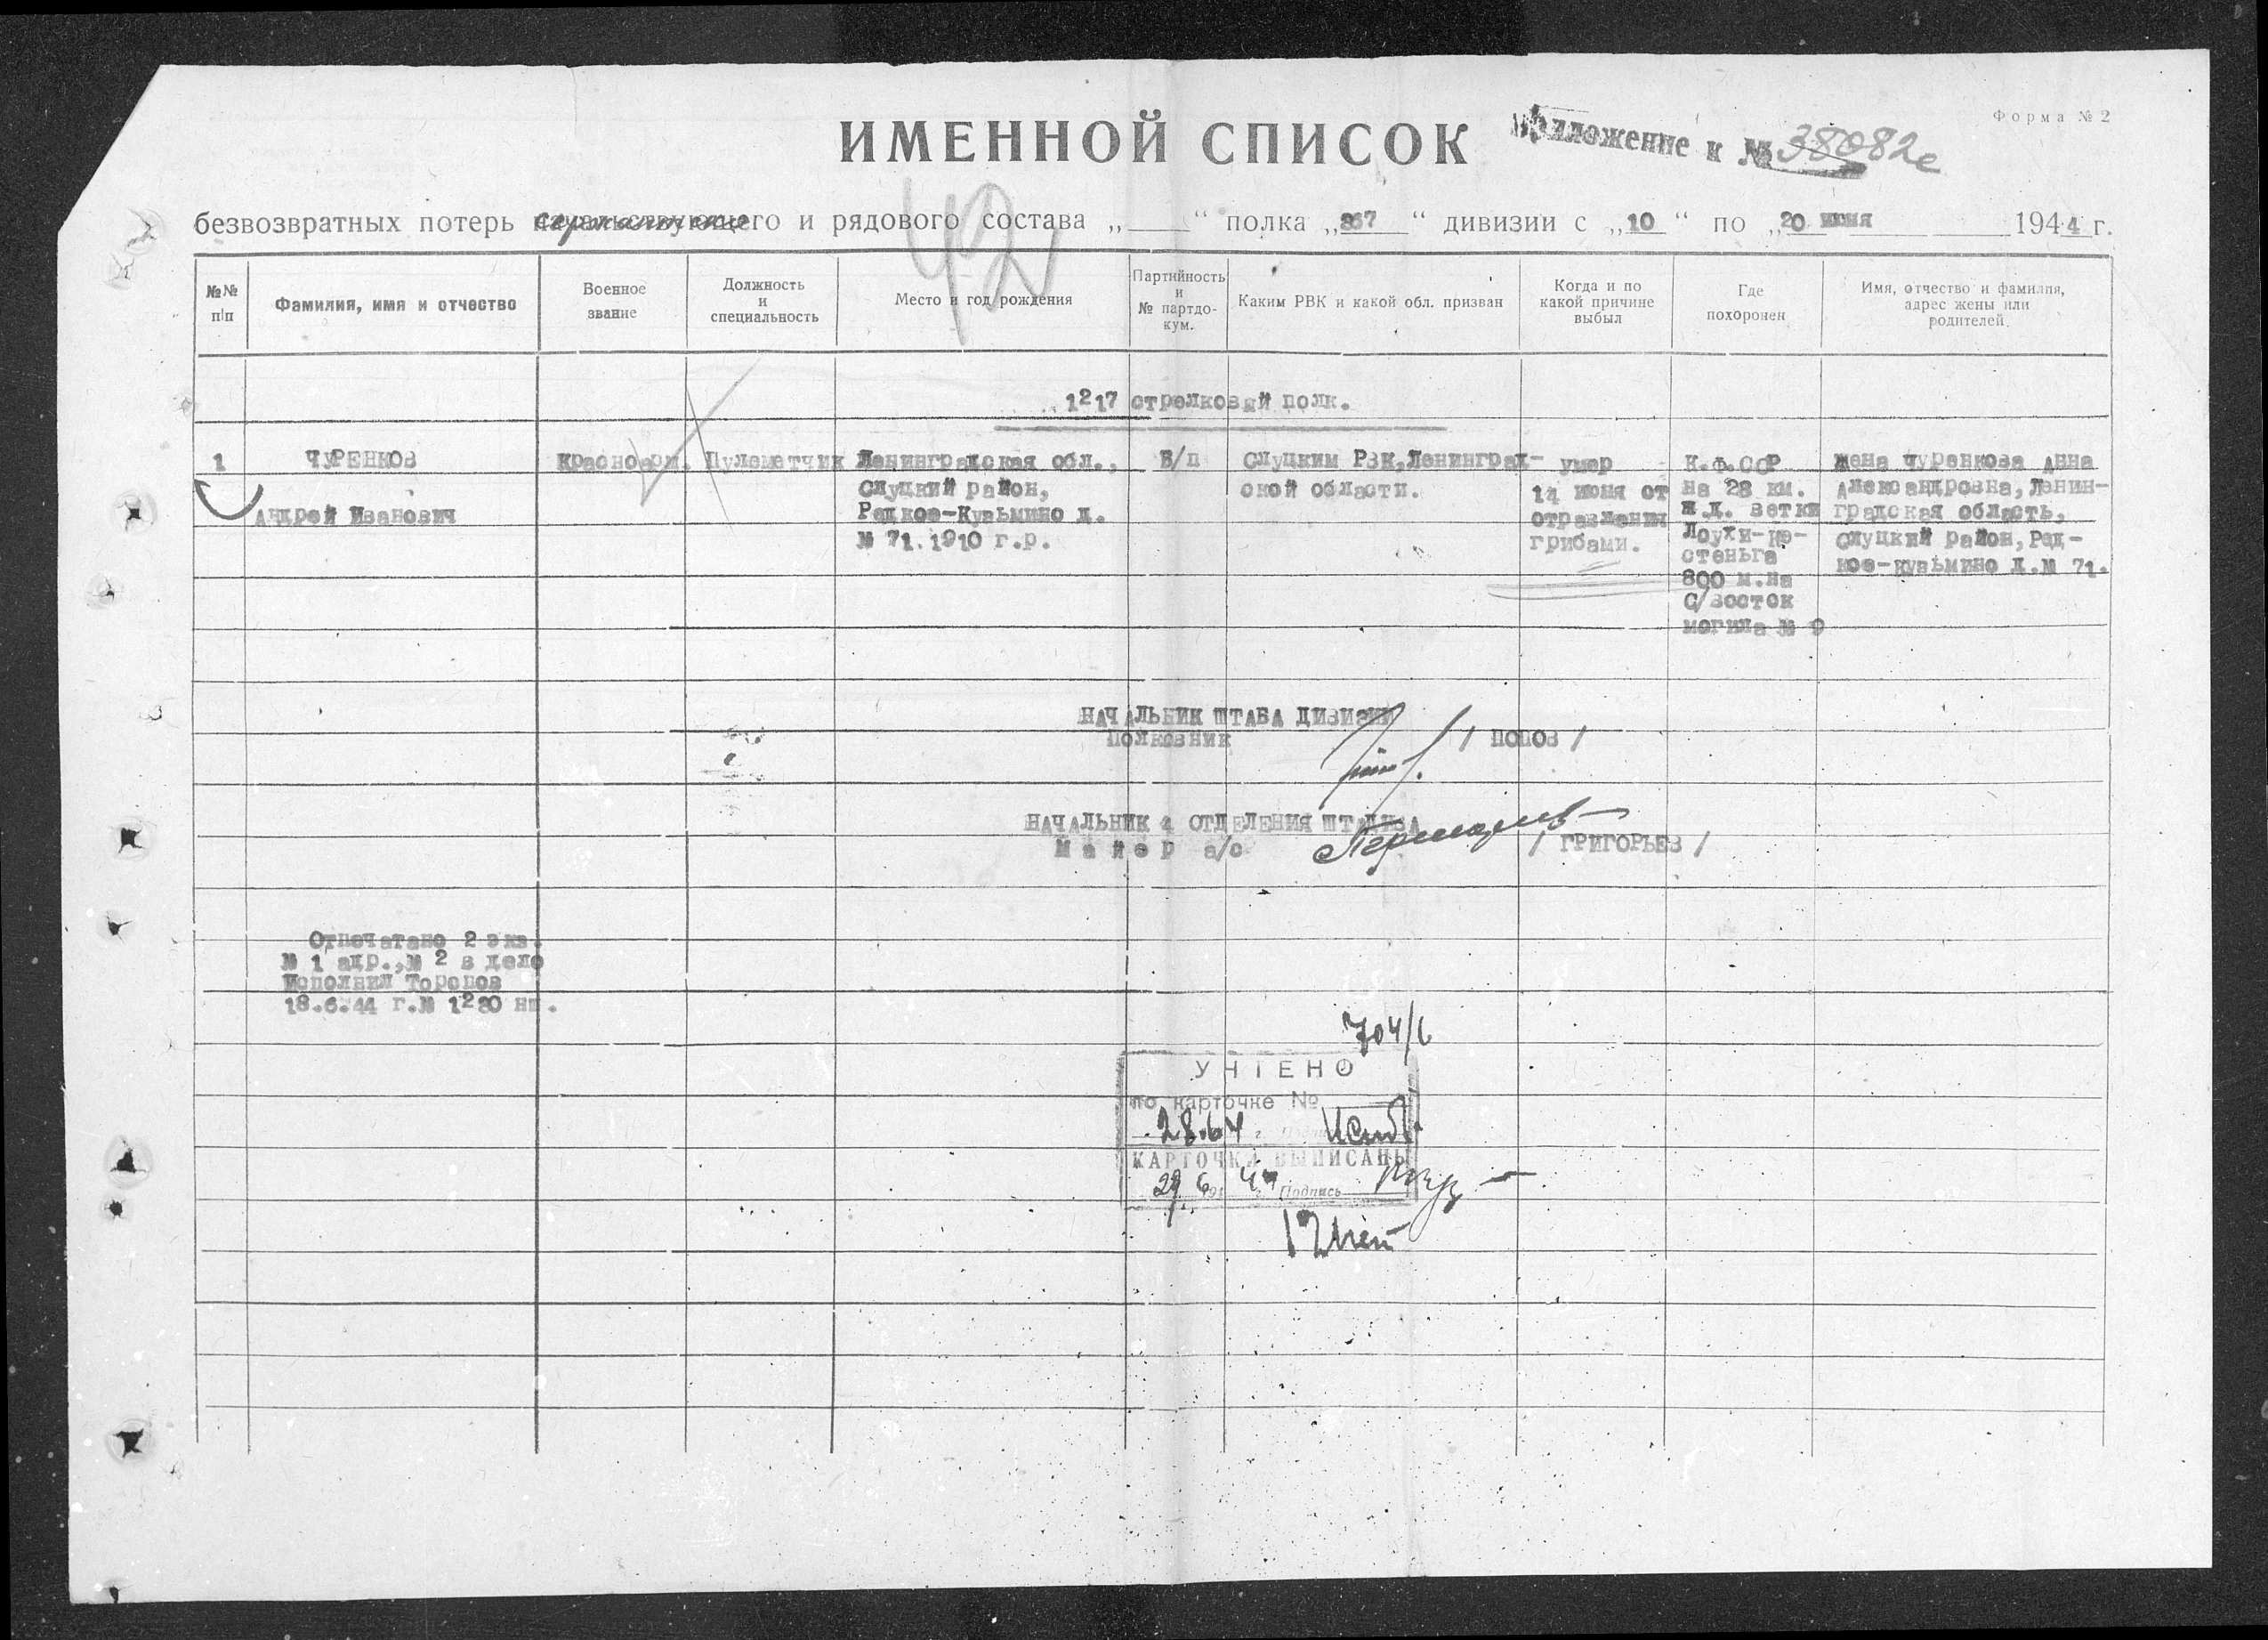 Форма № 2
ИМЕННОЙ СПИСОК
Приложение к № 38082с
безвозвратных потерь сержантского и рядового состава „ “ полка „367 “ дивизии с „10 “ по „20 июня 1944 г.
42
№№ п/п
Фамилия, имя и отчество
Военное звание
Должность и специальность
Место и год рождения
Партийность и № партдокум.
Каким РВК и какой обл. призван
Когда и по какой причине выбыл
Где похоронен
Имя, отчество и фамилия, адрес жены или родителей.
1217 стрелковый полк.
1
ЧУРЕНКОВ
Андрей Иванович
Красноарм.
Пулеметчик
Ленинградская обл.,
Слуцкий район,
Редкое-Кузьмино д.
№ 71. 1910 г.р.
Б/п
Слуцким РВК, Ленинград-
ской области.
умер
14 июня от
отравления
грибами.
К.Ф.ССР
на 28 км.
ж.д. ветки
Лоухи-Ке-
стеньга
800 м. на
С/восток
могила № 9
Жена Чуренкова Анна
Александровна, Ленин-
градская область,
Слуцкий район, Ред-
кое-Кузьмино д. № 71.
НАЧАЛЬНИК ШТАБА ДИВИЗИИ
Полковник / ПОПОВ /
НАЧАЛЬНИК 4 ОТДЕЛЕНИЯ ШТАДИВА
Майор а/с / ГРИГОРЬЕВ /
Отпечатано 2 экз.
№ 1 адр., № 2 в дело
Исполнил Торопов
18.6.44 г. № 1280 нш.
704/6
УЧТЕНО
по карточке №
КАРТОЧКА ВЫПИСАНЫ
29 6 44 Подпись